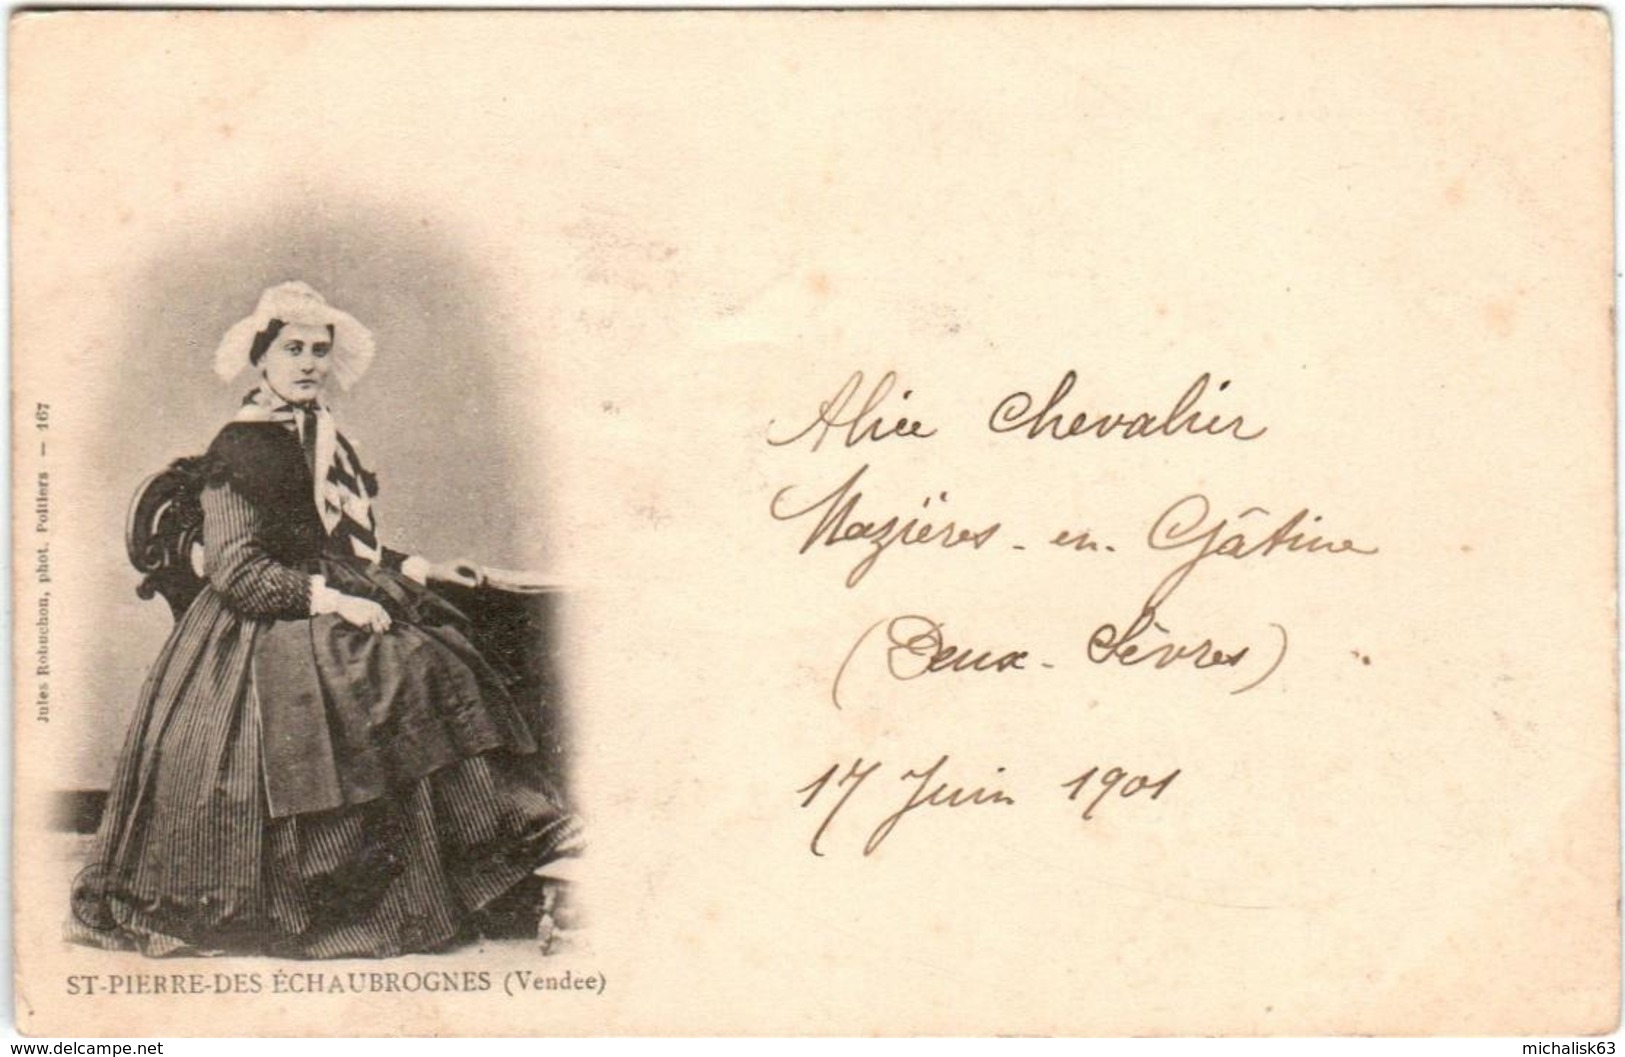 Jules Robuchon, phot. Poitiers — 167
Alice Chevalier
Mazières - en - Gâtine
(Deux - Sèvres)
17 Juin 1901
ST-PIERRE-DES ÉCHAUBROGNES (Vendée)
www.delcampe.net
michalisk63